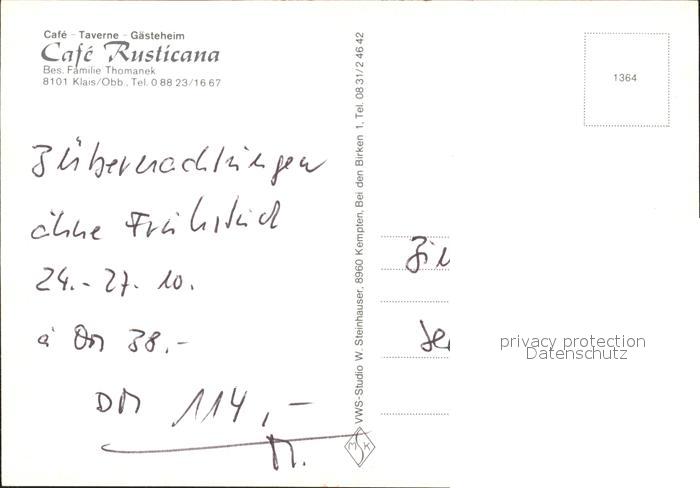 Café - Taverne - Gästeheim
Café Rusticana
Bes. Familie Thomanek
8101 Klais/Obb., Tel. 0 88 23/16 67
3 Übernachtungen
ohne Frühstück
24.- 27. 10.
à DM 38.-
DM 114,-
VWS-Studio W. Steinhauser, 8960 Kempten, Bei den Birken 1, Tel. 08 31/2 46 42
MSK
1364
privacy protection
Datenschutz